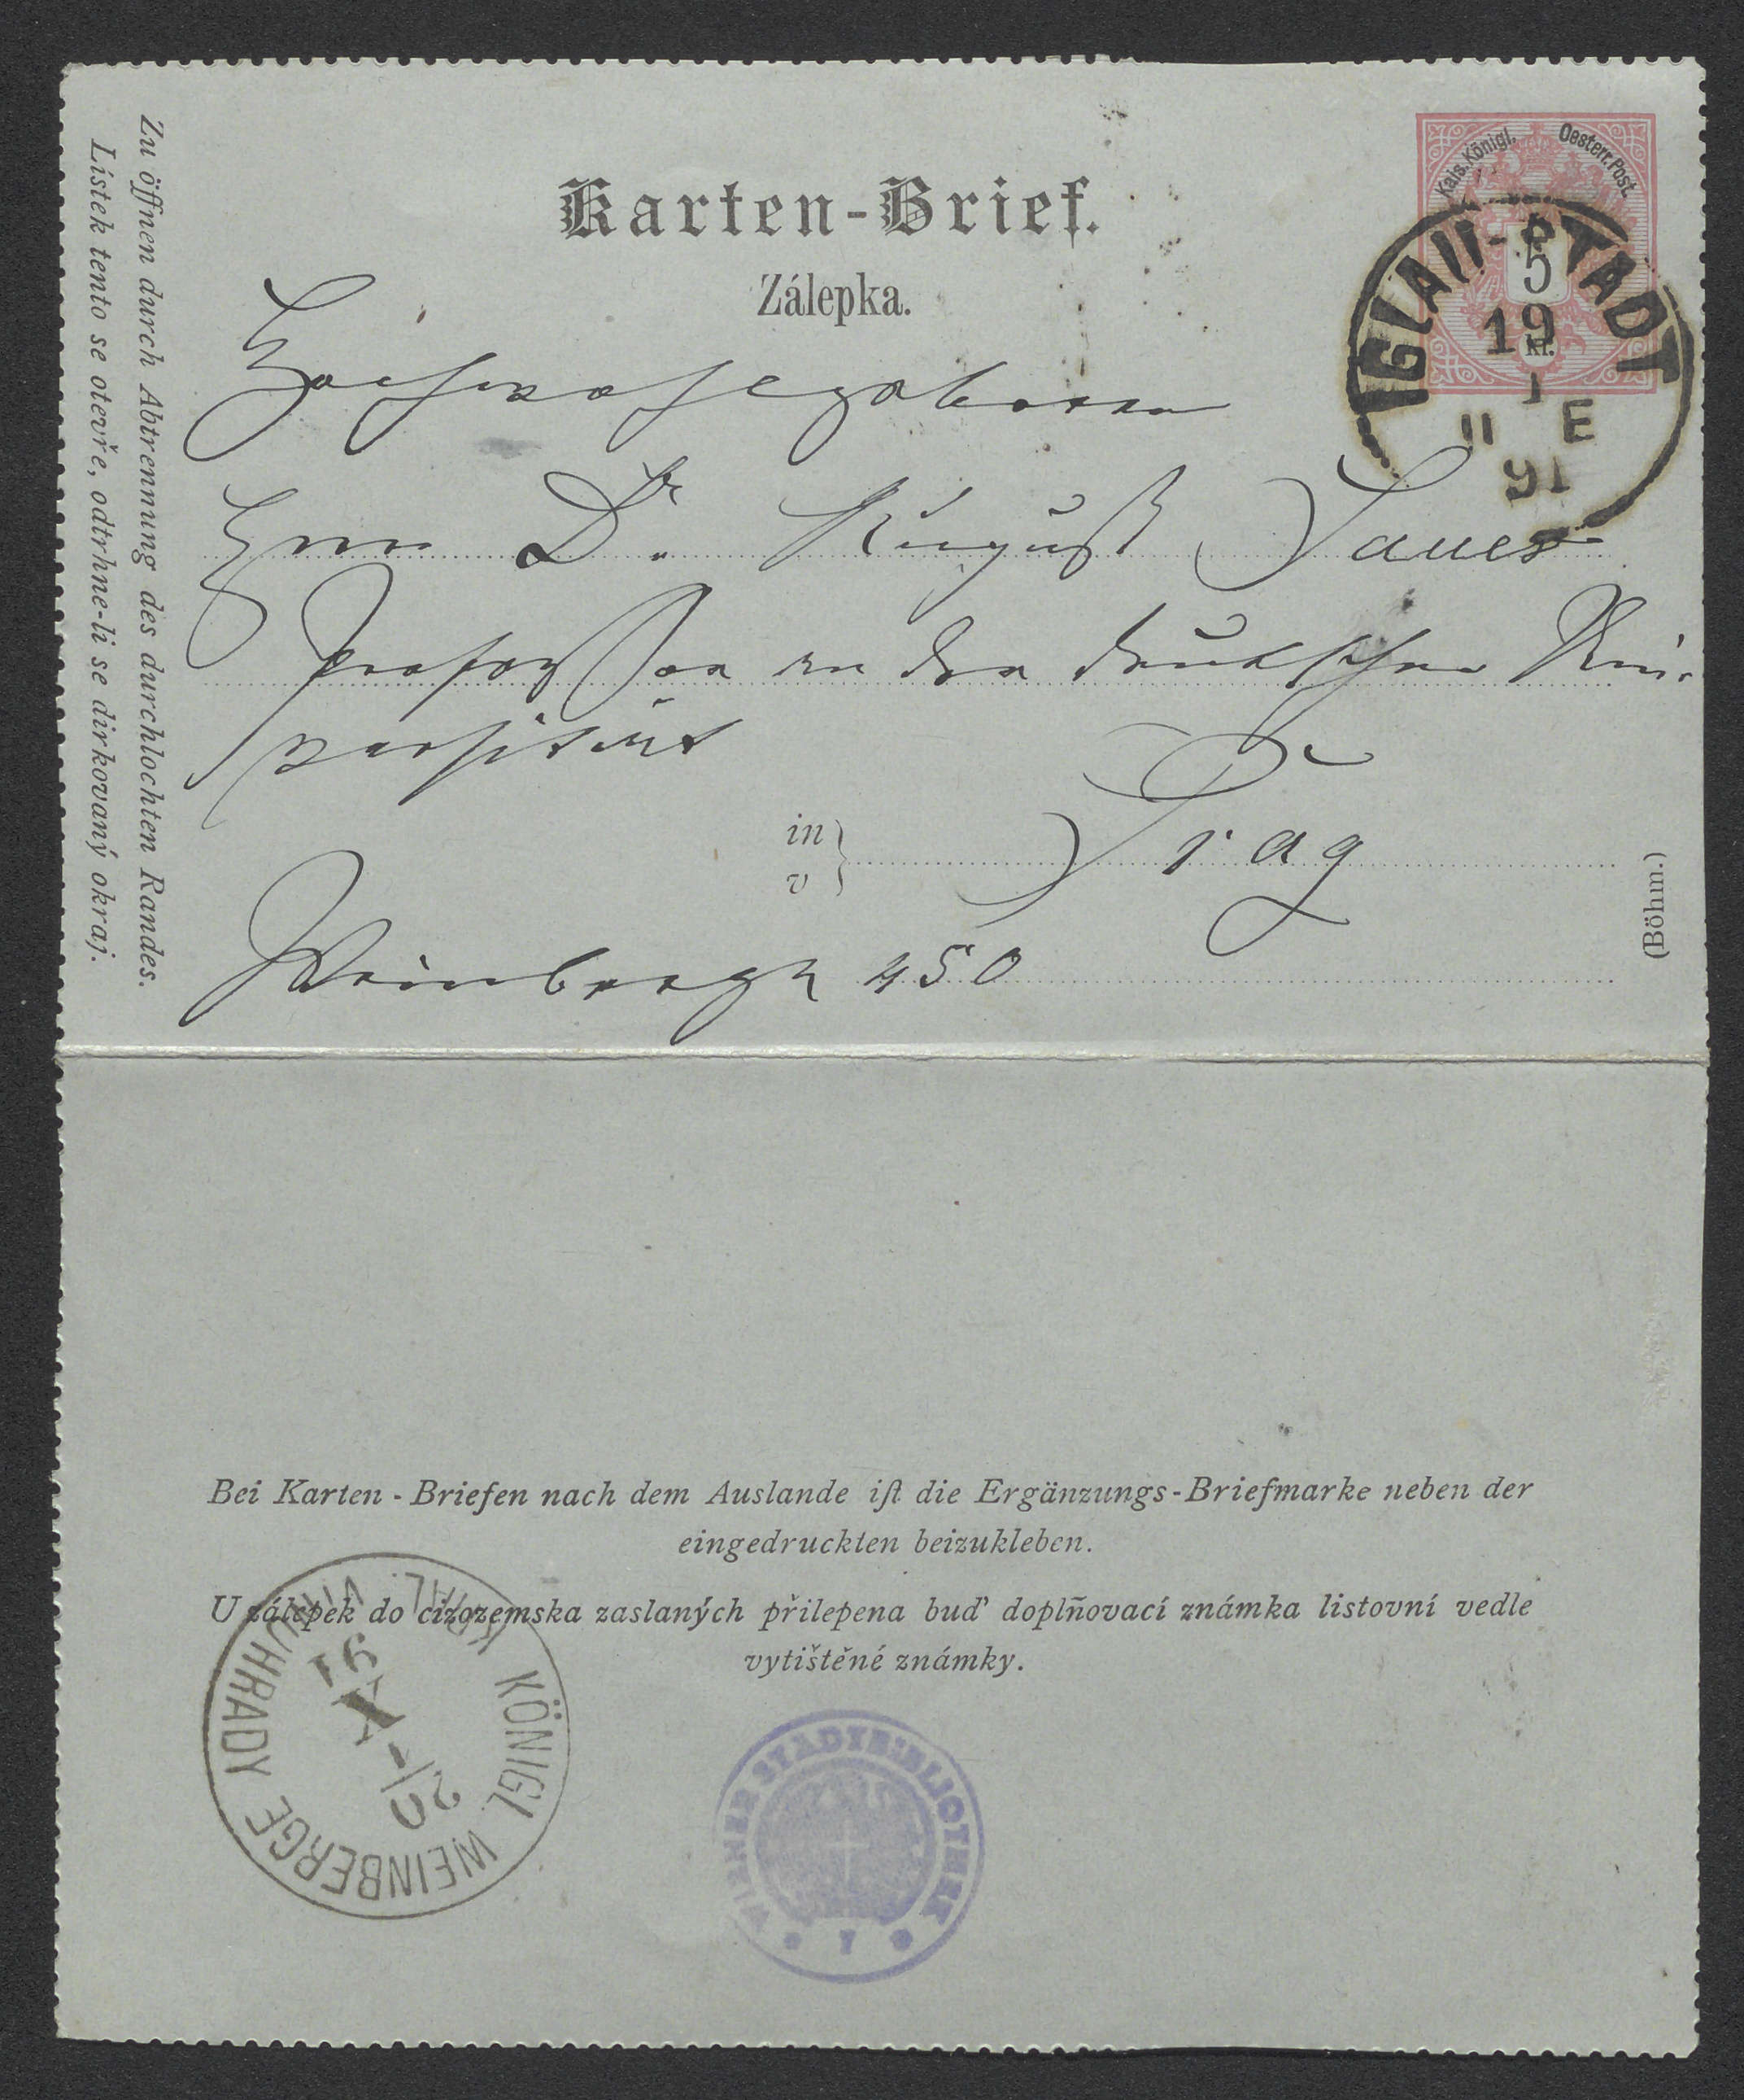 Kais. Königl. Oesterr. Post.
5
kr.
IGLAU-STADT
19
1
11 E
91
Karten-Brief.
Zálepka.
Hochwohlgeboren
Herrn Dr. August Sauer
Professor an der deutschen Uni-
versität
in
v
Prag
Weinberge 450
(Böhm.)
Zu öffnen durch Abtrennung des durchlochten Randes.
Lístek tento se otevře, odtrhne-li se dirkovaný okraj.
Bei Karten-Briefen nach dem Auslande iſt die Ergänzungs-Briefmarke neben der
eingedruckten beizukleben.
U zálepek do cizozemska zaslaných přilepena buď doplňovací známka listovní vedle
vytištěné známky.
KÖNIGL. WEINBERGE
KRÁL. VINOHRADY
20
X
91
WIENER STADTBIBLIOTHEK